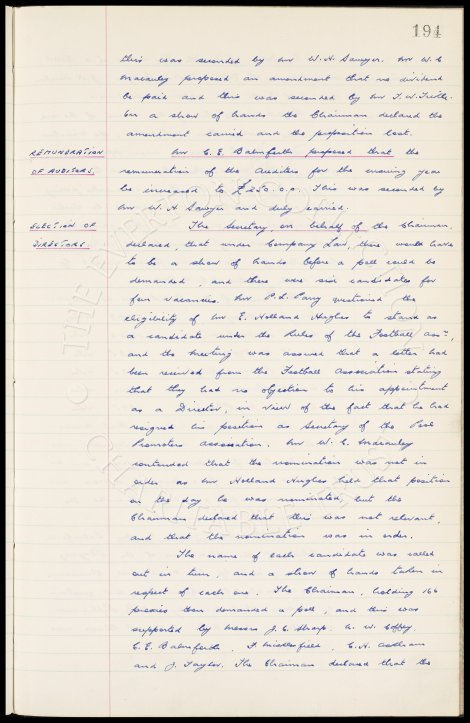 194
this was seconded by Mr W.H. Sawyer. Mr W.C
Macauley proposed an amendment that no dividend
be paid and this was seconded by Mr F.W.
On a show of hands the Chairman declared the
amendment carried and the proposition lost.
REMUNERATION OF AUDITORS.
Mr C.E. Balmforth proposed that the
remuneration of the Auditors for the ensuing year
be increased to £250.0.0. This was seconded by
Mr W.H. Sawyer and duly carried.
ELECTION OF DIRECTORS.
The Secretary, on behalf of the Chairman,
declared, that under Company Law, there would have
to be a show of hands before a poll could be
demanded, and there were six candidates for
four vacancies. Mr P.L. Parry questioned the
eligibility of Mr E. Holland Hughes to stand as
a candidate under the Rules of the Football Assn,
and the meeting was assured that a letter had
been received from the Football Association stating
that they had no objection to his appointment
as a Director, in view of the fact that he had
resigned his position as Secretary of the Pool
Promoters Association. Mr W.C. Macauley
contended that the nomination was not in
order as Mr Holland Hughes held that position
on the day he was nominated, but the
Chairman declared that this was not relevant,
and that the nomination was in order.
The name of each candidate was called
out in turn, and a show of hands taken in
respect of each one. The Chairman, holding 166
proxies then demanded a poll, and this was
supported by Messrs J.C. Sharp, A.W. Coffey,
C.E. Balmforth, F. Micklesfield, C.H. Askham
and J. Taylor. The Chairman declared that the